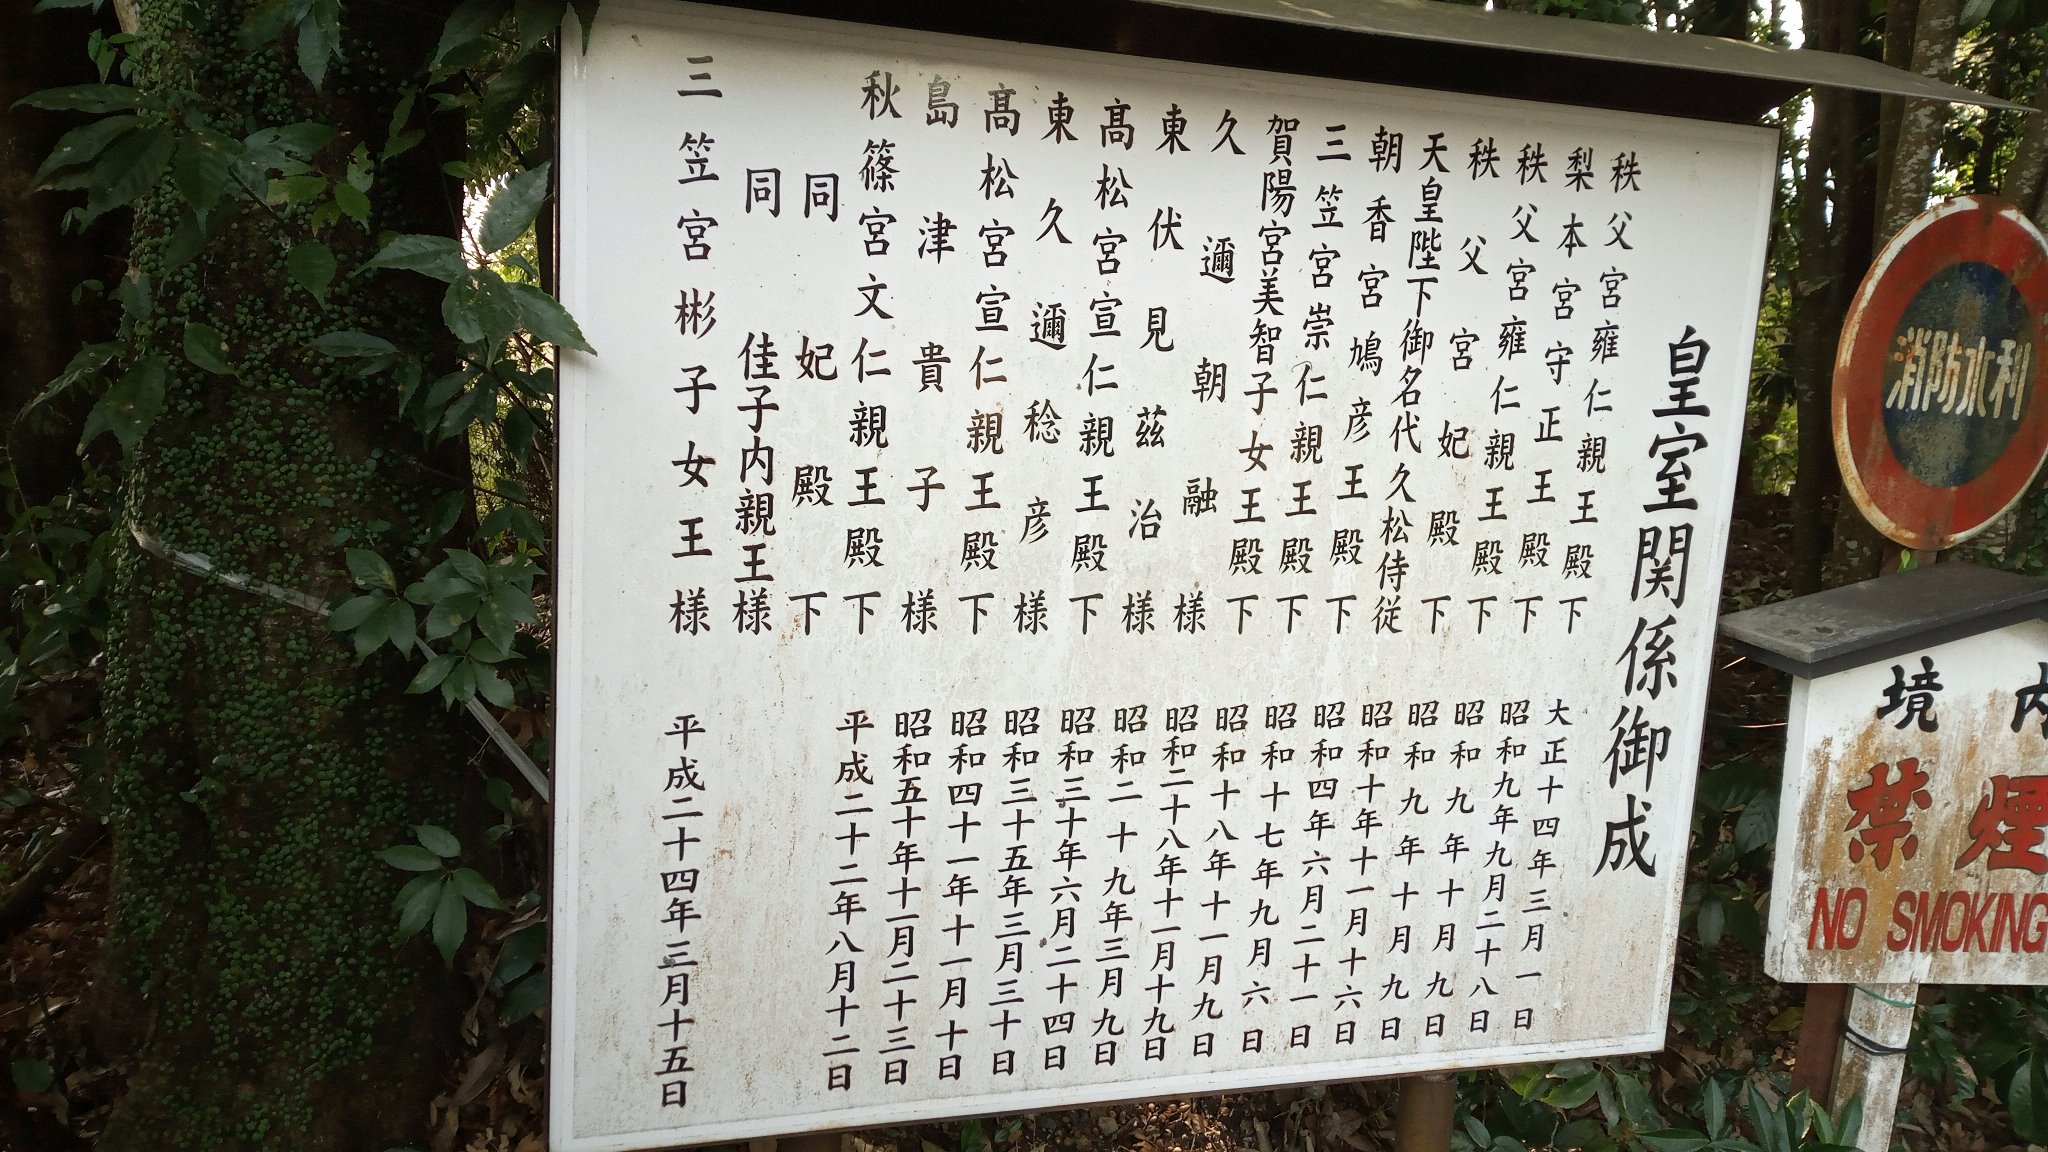 皇室関係御成
秩父宮雍仁親王殿下 大正十四年三月一日
梨本宮守正王殿下 昭和九年九月二十八日
秩父宮雍仁親王殿下 昭和九年十月九日
秩父宮妃殿下 昭和九年十月九日
天皇陛下御名代久松侍従 昭和十年十一月十六日
朝香宮鳩彦王殿下 昭和四年六月二十一日
三笠宮崇仁親王殿下 昭和十七年九月六日
賀陽宮美智子女王殿下 昭和十八年十一月九日
久邇朝融様 昭和二十八年十一月十九日
東伏見茲治様 昭和二十九年三月九日
髙松宮宣仁親王殿下 昭和三十年六月二十四日
東久邇稔彦様 昭和三十五年三月三十日
髙松宮宣仁親王殿下 昭和四十一年十一月十日
島津貴子様 昭和五十年十一月二十三日
秋篠宮文仁親王殿下 平成二十二年八月十二日
同妃殿下
同佳子内親王様
三笠宮彬子女王様 平成二十四年三月十五日
消防水利
境内
禁煙
NO SMOKING